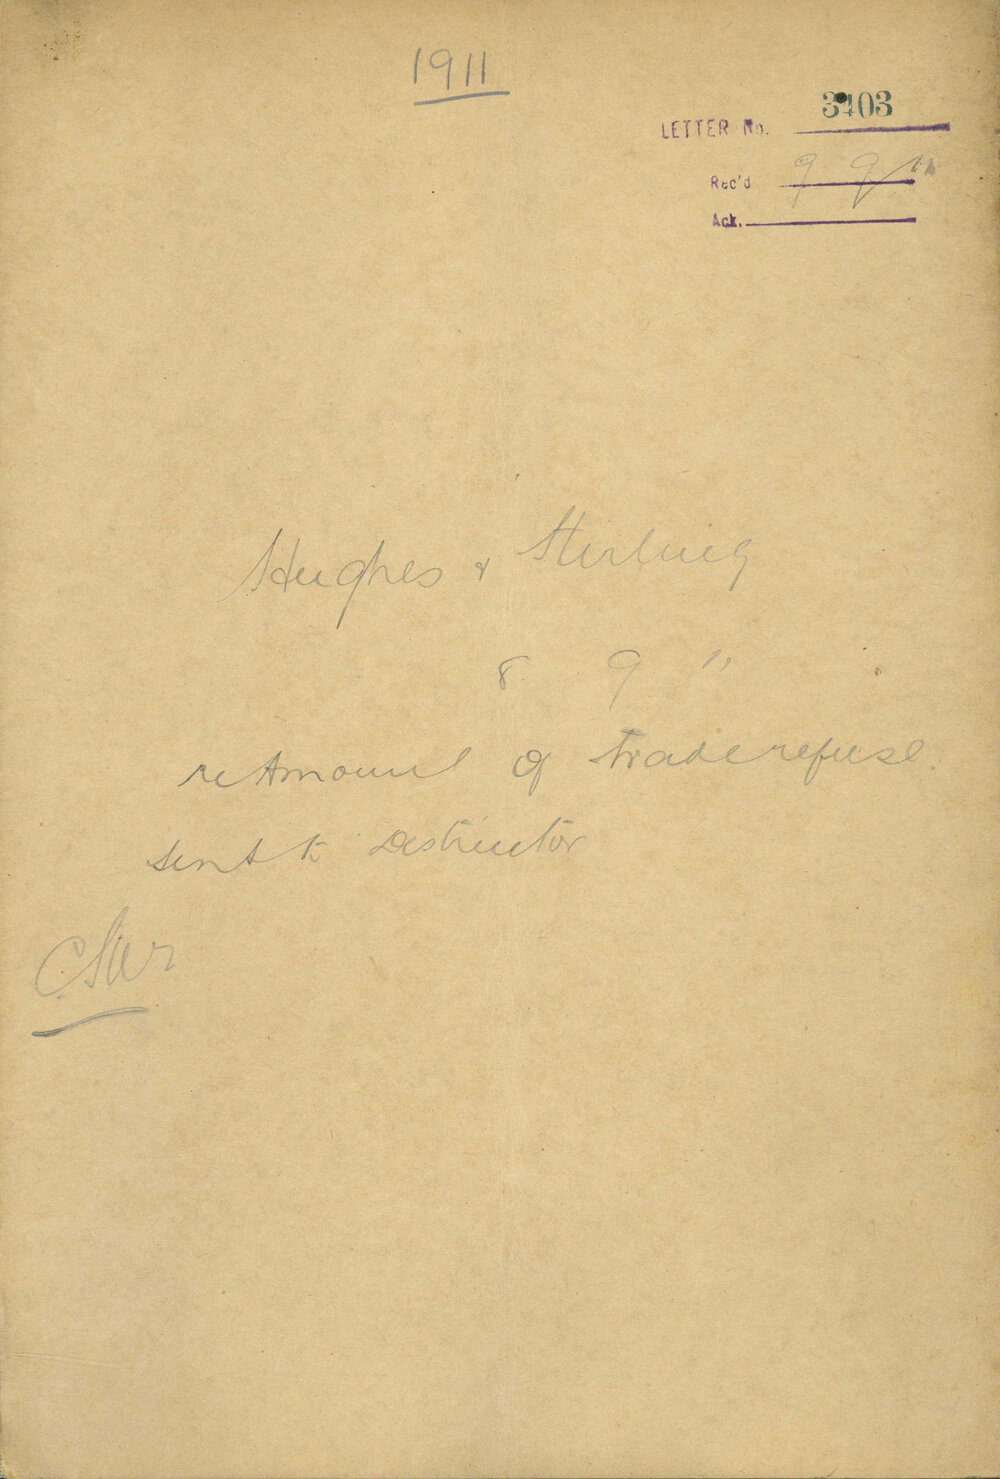 1911
LETTER No. 3403
Rec'd 9 9 11
Ack.
Hughes & Stirling
8 9 11
re Amount of trade refuse
sent to Destructor